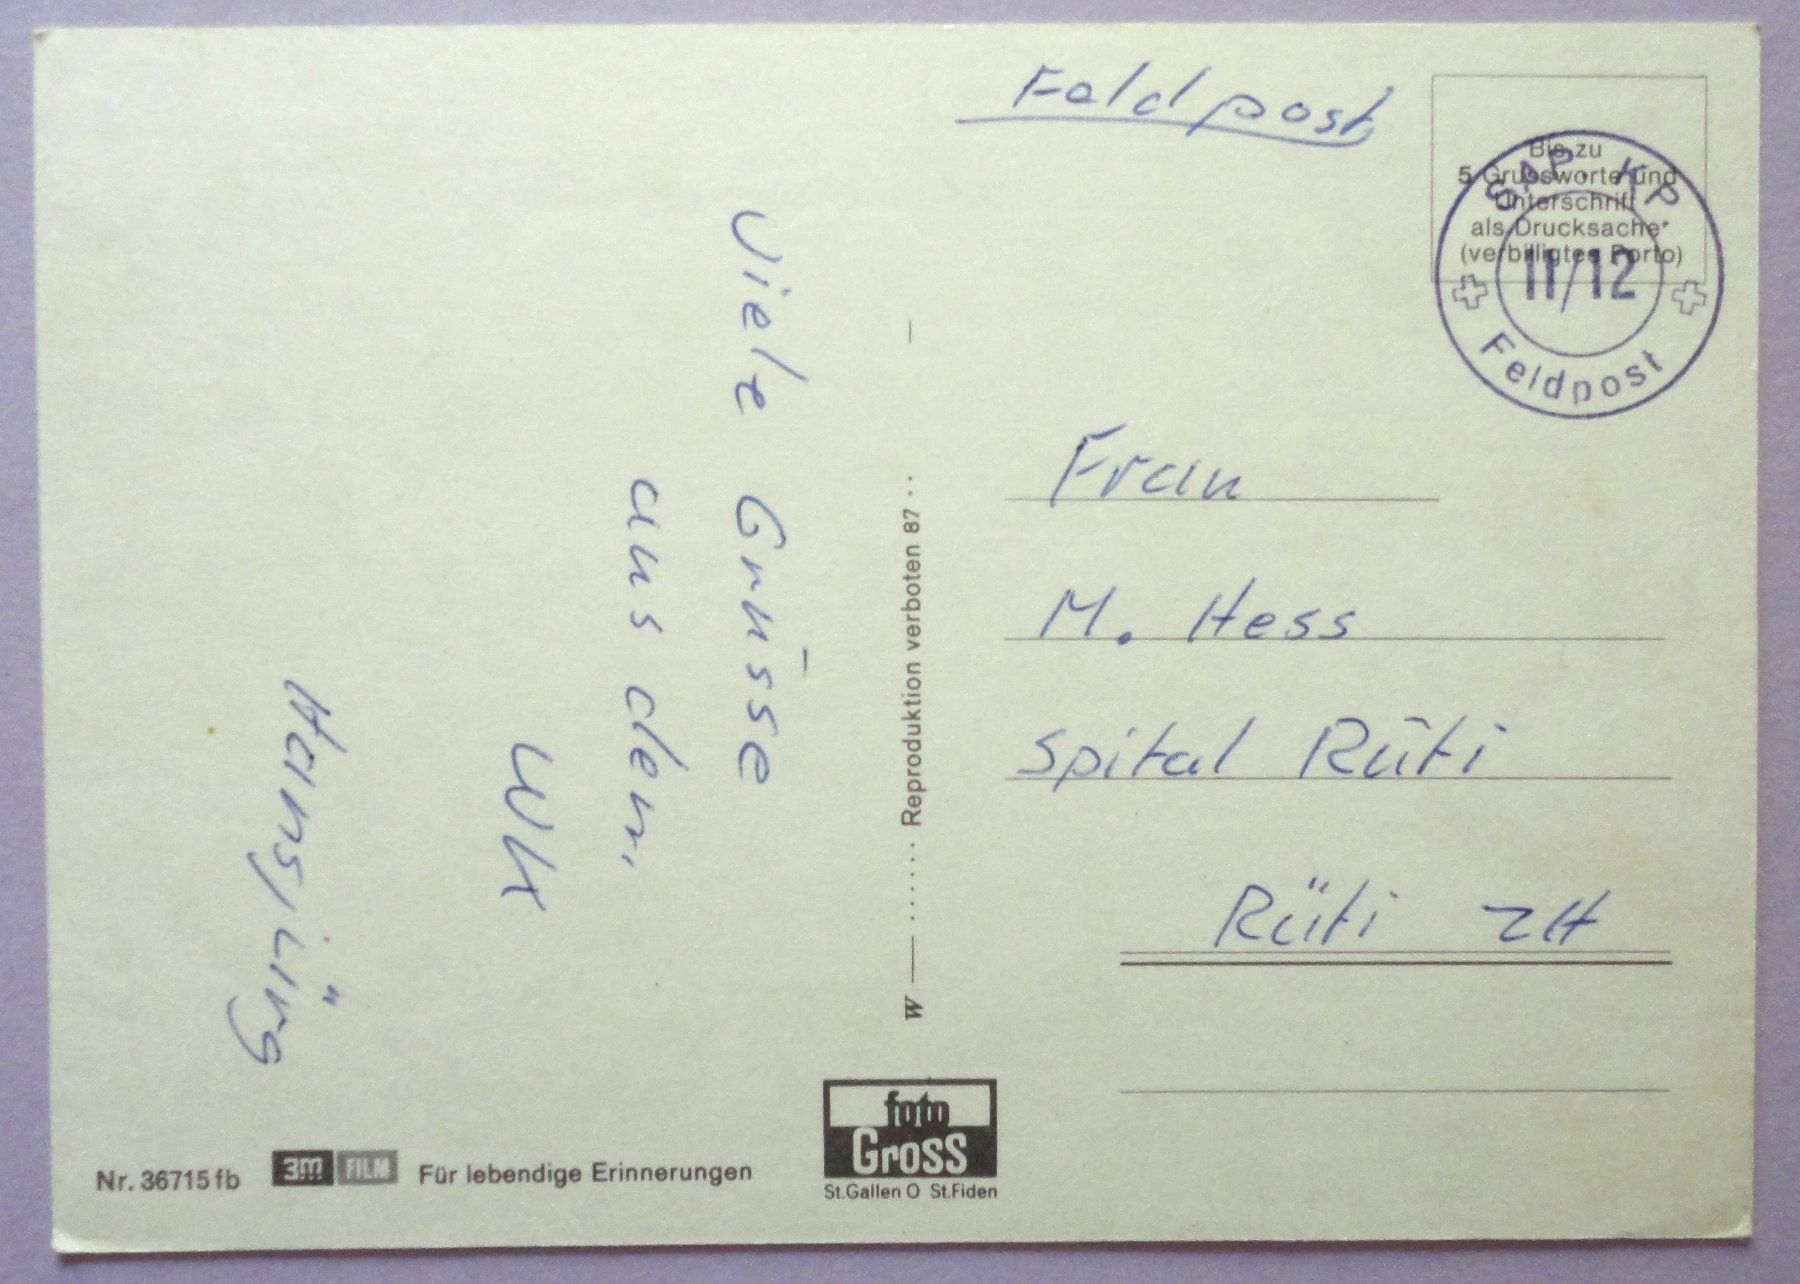 Feldpost
Bis zu
5 Grussworte und
Unterschrift
als Drucksache*
(verbilligtes Porto)
SAP. KP
11/12
Feldpost
Viele Grüsse
aus dem
WK
Hansjürg
Frau
M. Hess
Spital Rüti
Rüti ZH
W Reproduktion verboten 87
Nr. 36715 fb
3M FILM Für lebendige Erinnerungen
foto
Gross
St.Gallen O St.Fiden